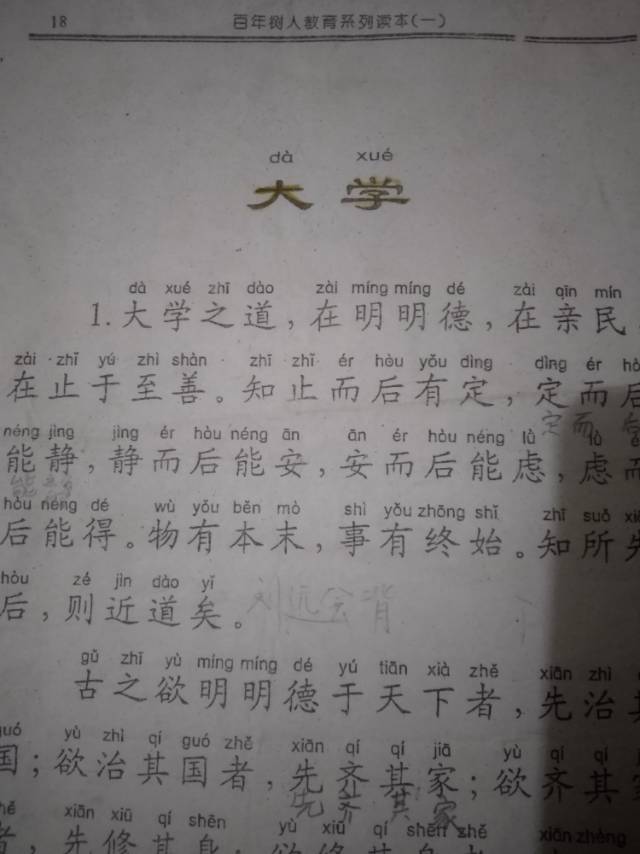 18 百年树人教育系列读本(一)
dà xué
大学
dà xué zhī dào zài míng míng dé zài qīn mín
1.大学之道，在明明德，在亲民
zài zhǐ yú zhì shàn zhī zhǐ ér hòu yǒu dìng dìng ér
在止于至善。知止而后有定，定而后
定而后
néng jìng jìng ér hòu néng ān ān ér hòu néng lǜ lǜ
能静，静而后能安，安而后能虑，虑而
能静
hòu néng dé wù yǒu běn mò shì yǒu zhōng shǐ zhī suǒ
后能得。物有本末，事有终始。知所先
hòu zé jìn dào yǐ
后，则近道矣。
刘远会背
gǔ zhī yù míng míng dé yú tiān xià zhě xiān zhì
古之欲明明德于天下者，先治其
guó yù zhì qí guó zhě xiān qí qí jiā yù qí
国；欲治其国者，先齐其家；欲齐其
先齐其家
zhě xiān xiū qí shēn yù xiū qí shēn zhě xiān zhèng
者，先修其身；欲修其身者